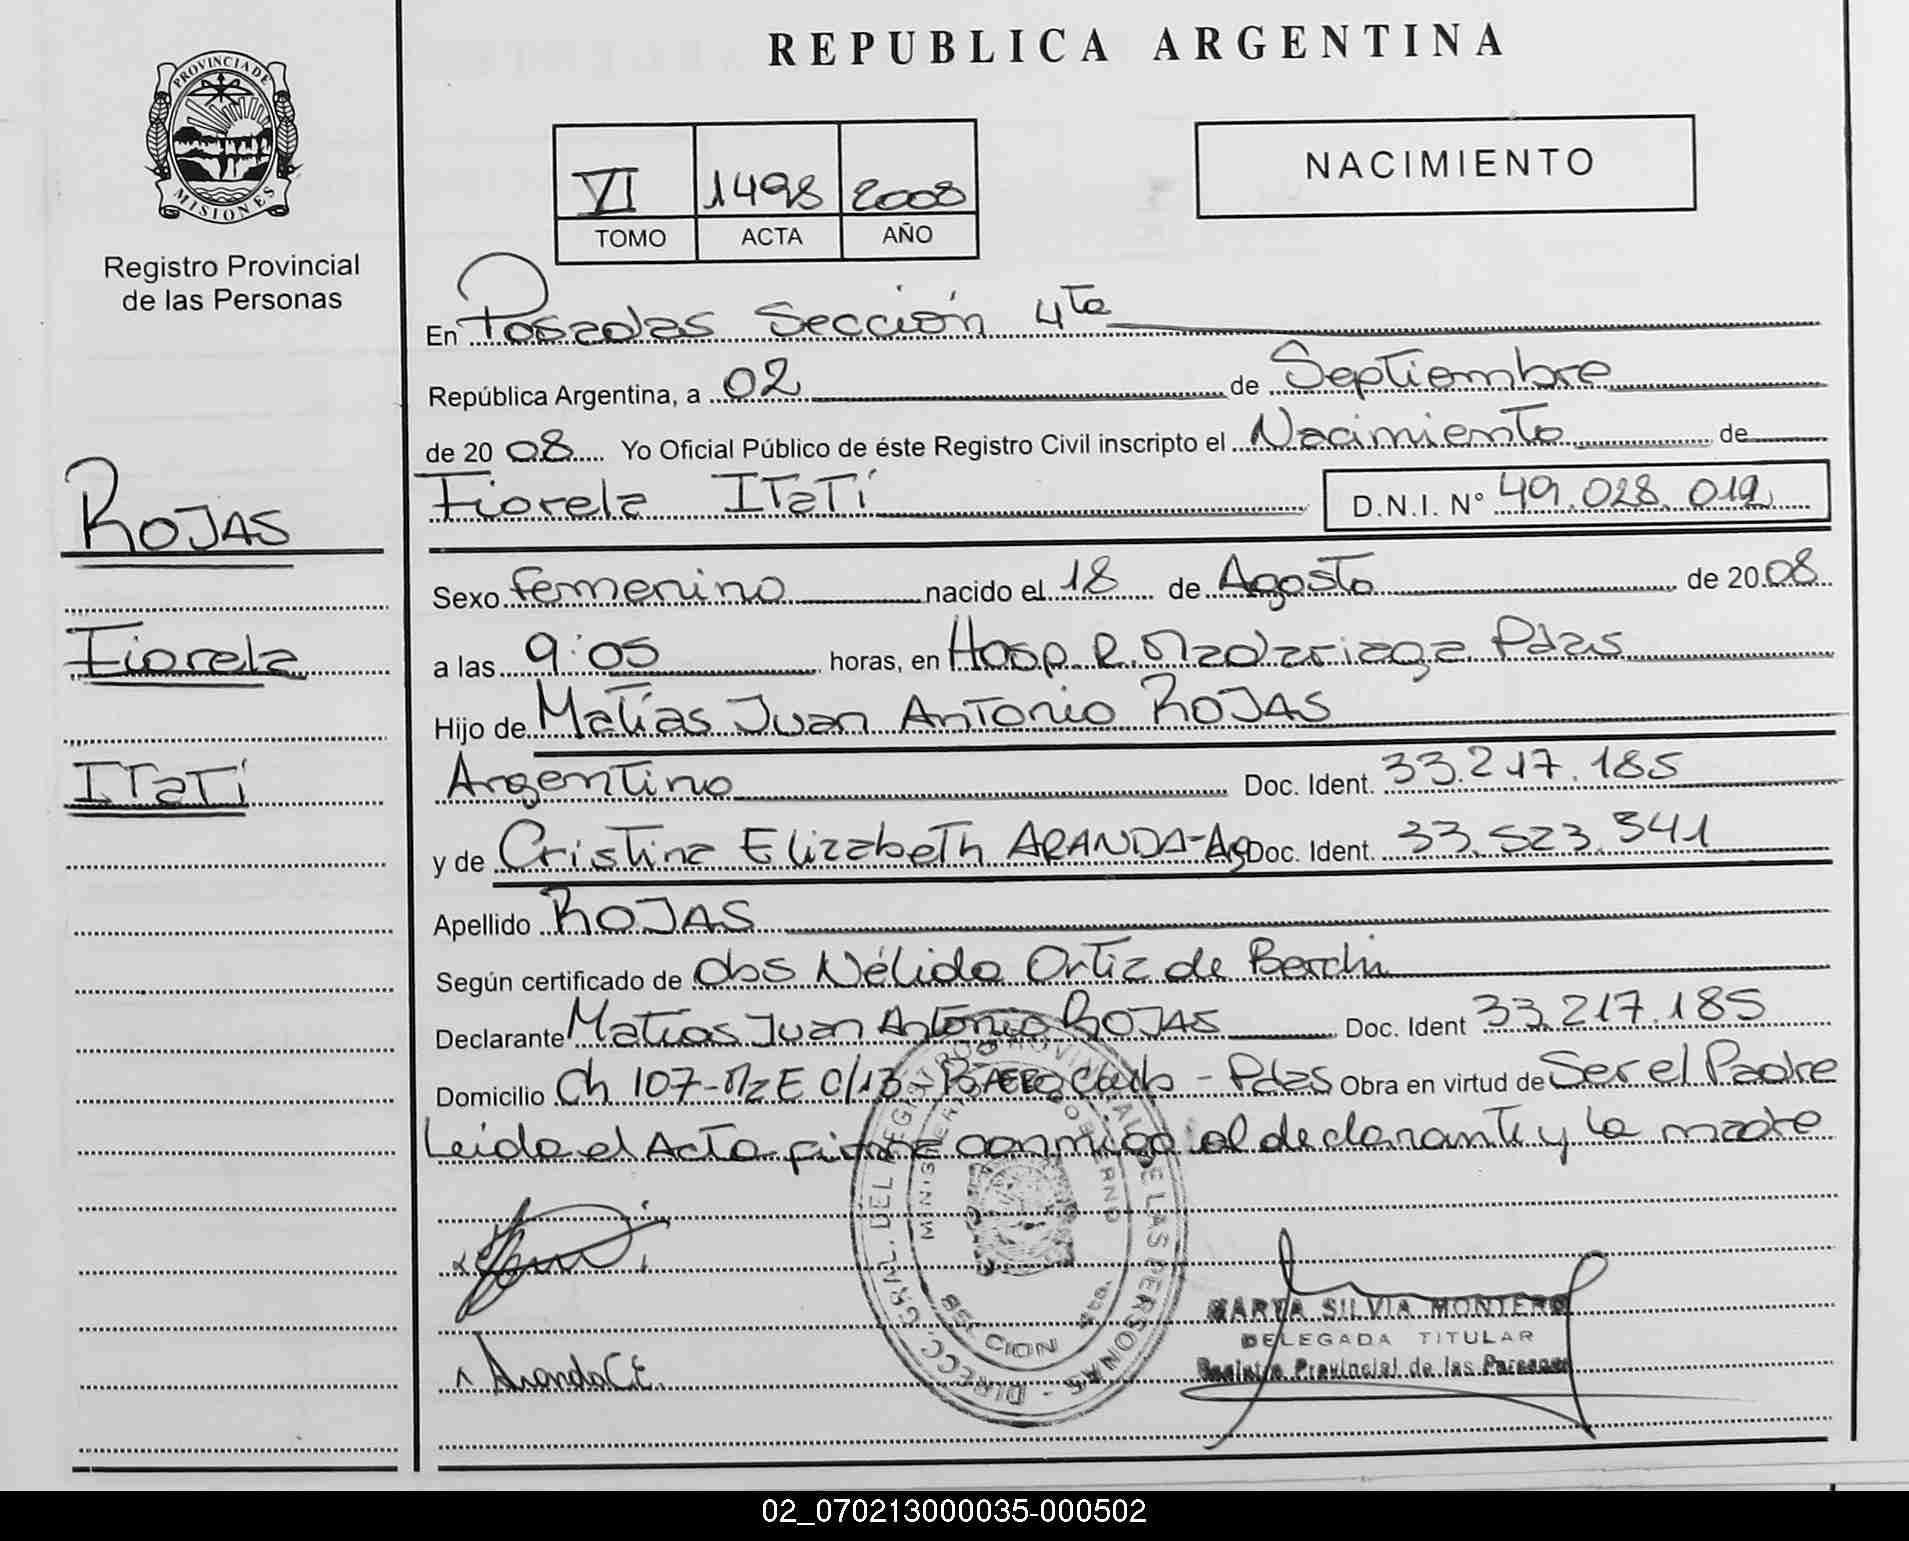 PROVINCIA DE
MISIONES
Registro Provincial
de las Personas
ROJAS
Fiorela
ITatí
REPUBLICA ARGENTINA
VI 1498 2008
TOMO ACTA AÑO
NACIMIENTO
En Posadas Sección 4ta
República Argentina, a 02 de Septiembre
de 2008 Yo Oficial Público de éste Registro Civil inscripto el Nacimiento de
Fiorela ITatí D.N.I. N° 49.028.012
Sexo femenino nacido el 18 de Agosto de 2008
a las 9:05 horas, en Hosp. R. Madariaga Pdas
Hijo de Matías Juan Antonio ROJAS
Argentino Doc. Ident. 33.217.185
y de Cristina Elizabeth ARANDA-Ag Doc. Ident. 33.523.341
Apellido ROJAS
Según certificado de obs Nélida Ortiz de Berchi
Declarante Matías Juan Antonio ROJAS Doc. Ident 33.217.185
Domicilio Ch 107-Mz E C/13 - Bº Aero Club - Pdas Obra en virtud de Ser el Padre
Leida el Acta firma conmigo el declarante y la madre
DIRECC. GRAL. DEL REGISTRO PROVINCIAL DE LAS PERSONAS
MINISTERIO GOBIERNO
SECCION 4ta.
Aranda C.E.
MARTA SILVIA MONTERO
DELEGADA TITULAR
Registro Provincial de las Personas
02_070213000035-000502